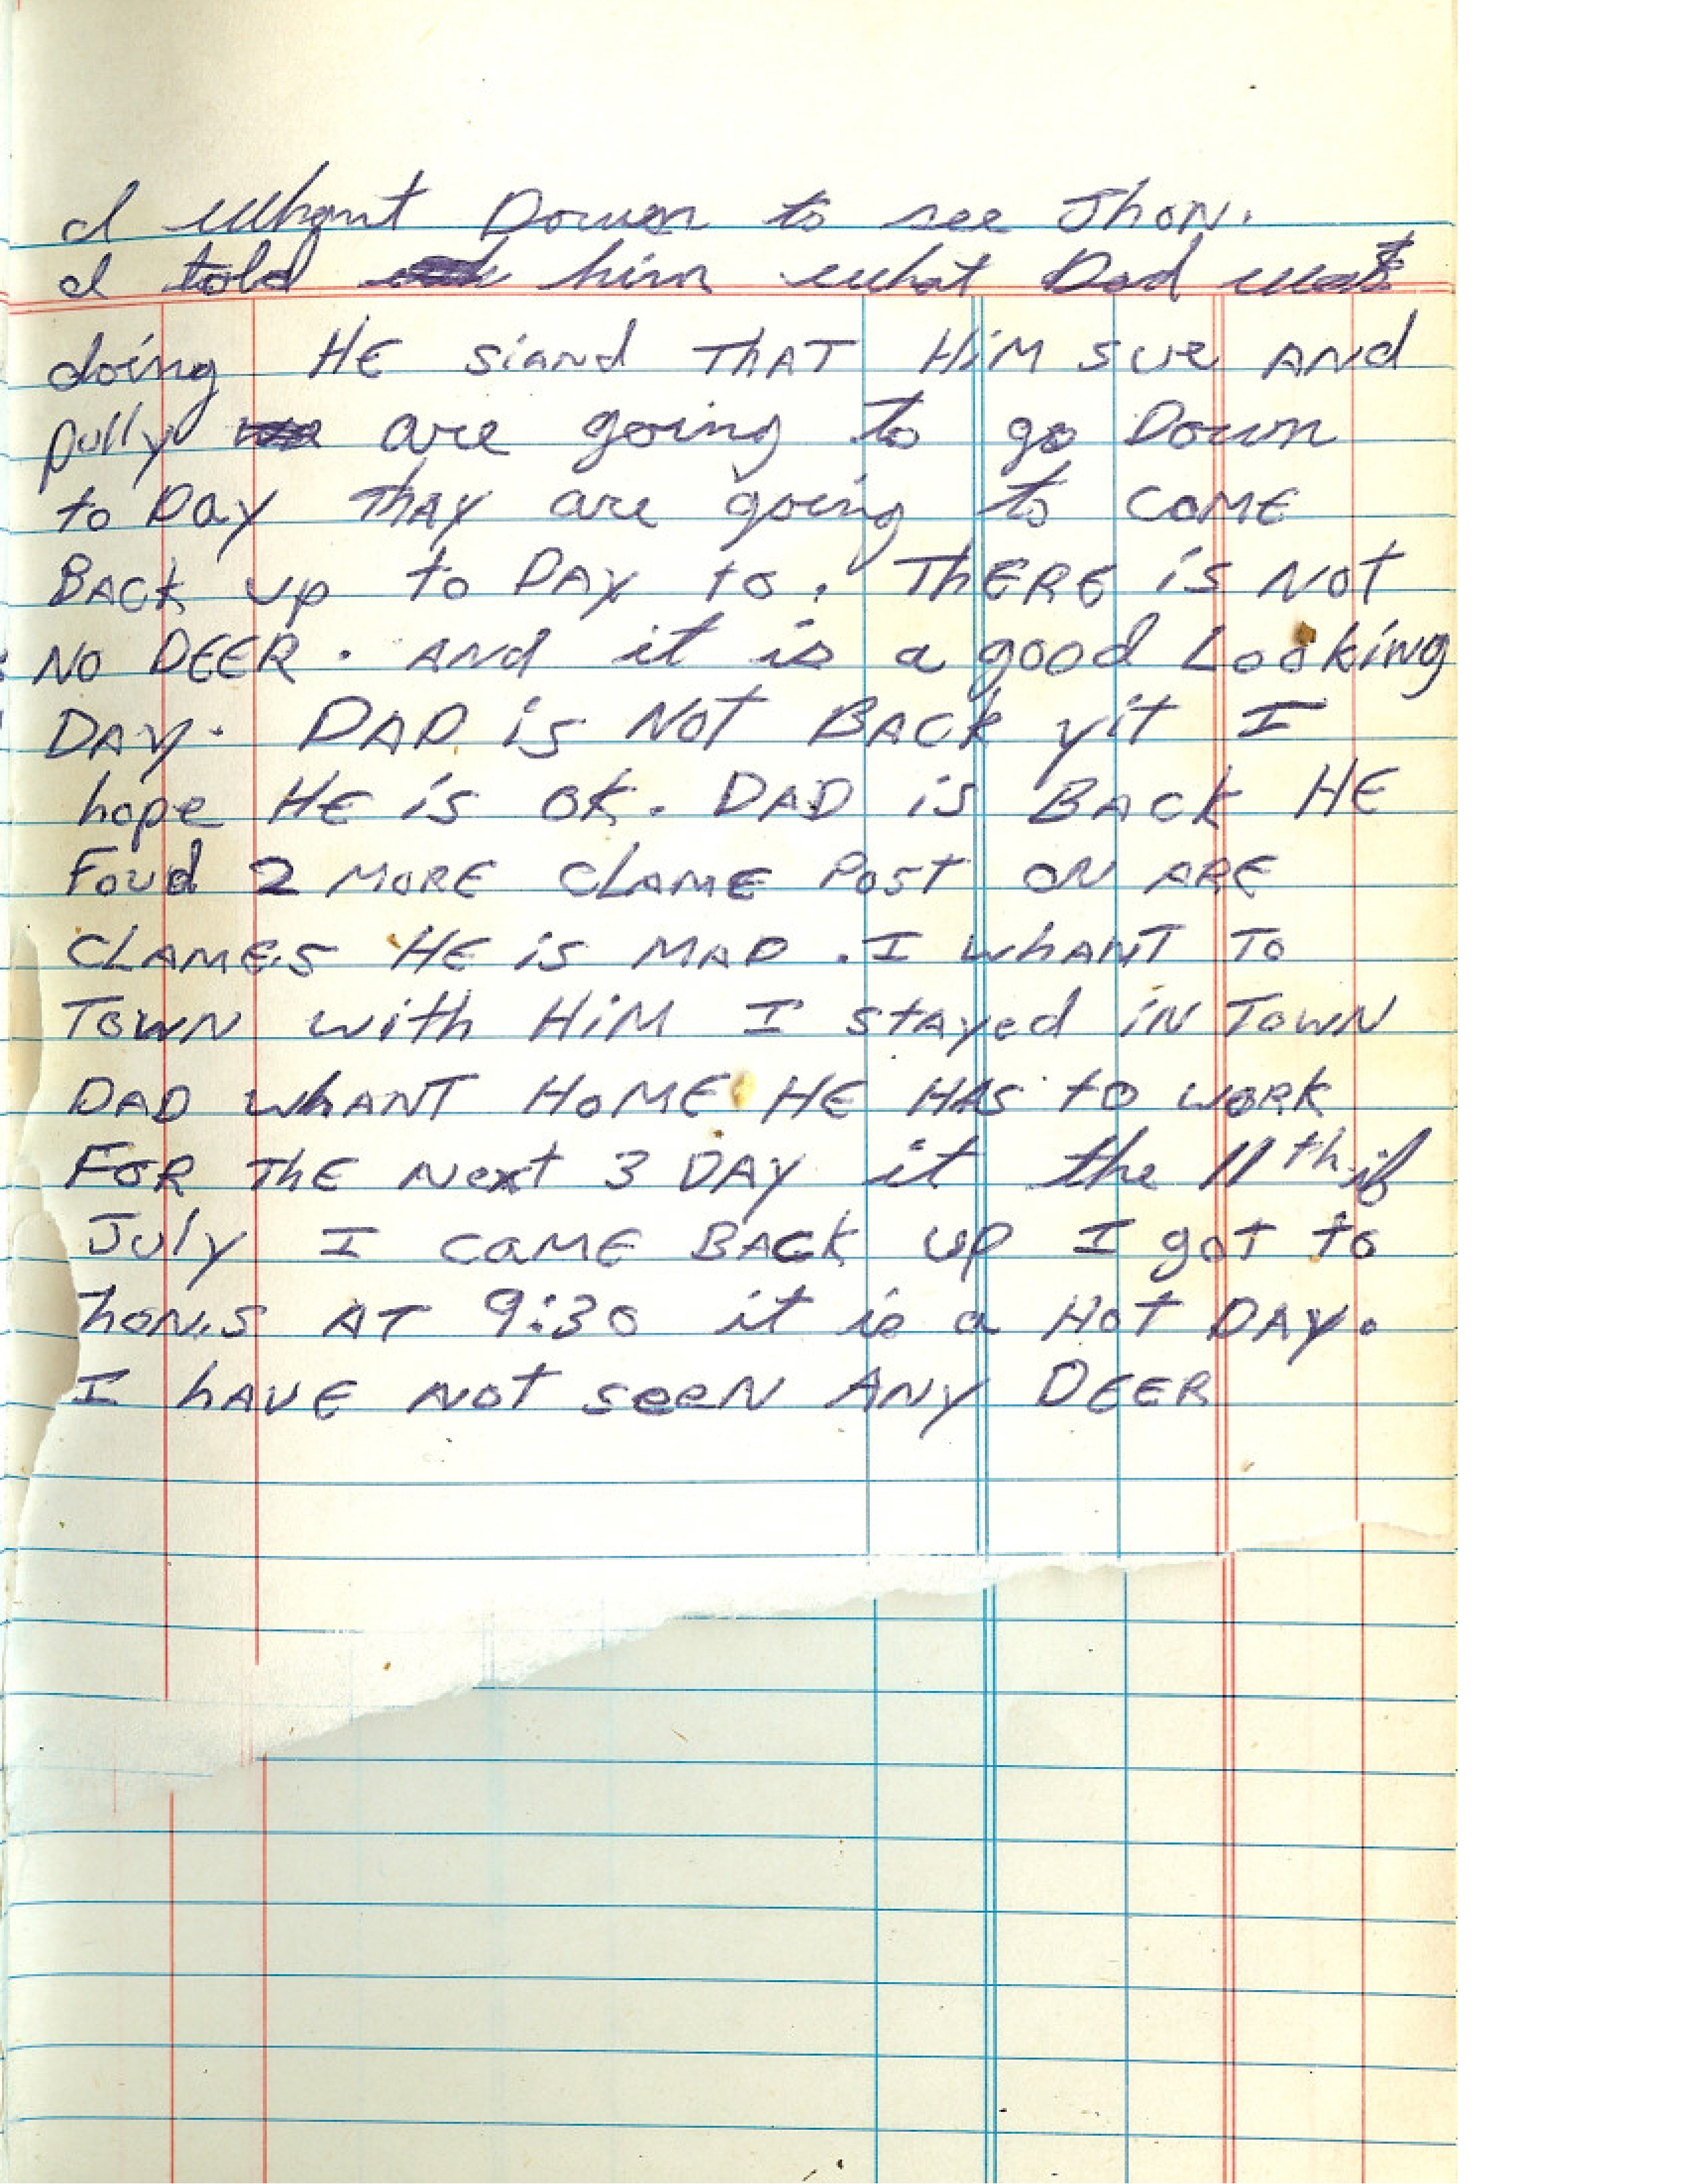 I whant Down to see Jhon.
I told him what Dad was
doing HE siand THAT HiM SUE AND
polly are going to go Down
to Day Thay are going to COME
BACK up to DAY to. THERE is NOT
NO DEER. AND it is a good Looking
DAY. DAD is NOT BACK yit I
hope HE is OK. DAD is BACK HE
Foud 2 MORE CLAME POST ON ARE
CLAMES HE is MAD. I whANT TO
TOWN with HiM I stayed iN TOWN
DAD whANT HOME HE HAS to WORK
FOR THE Next 3 DAY it the 11th if
July I CAME BACK up I got to
AT 9:30 it is a HOT DAY.
I hAVE NOT seeN ANY DEER